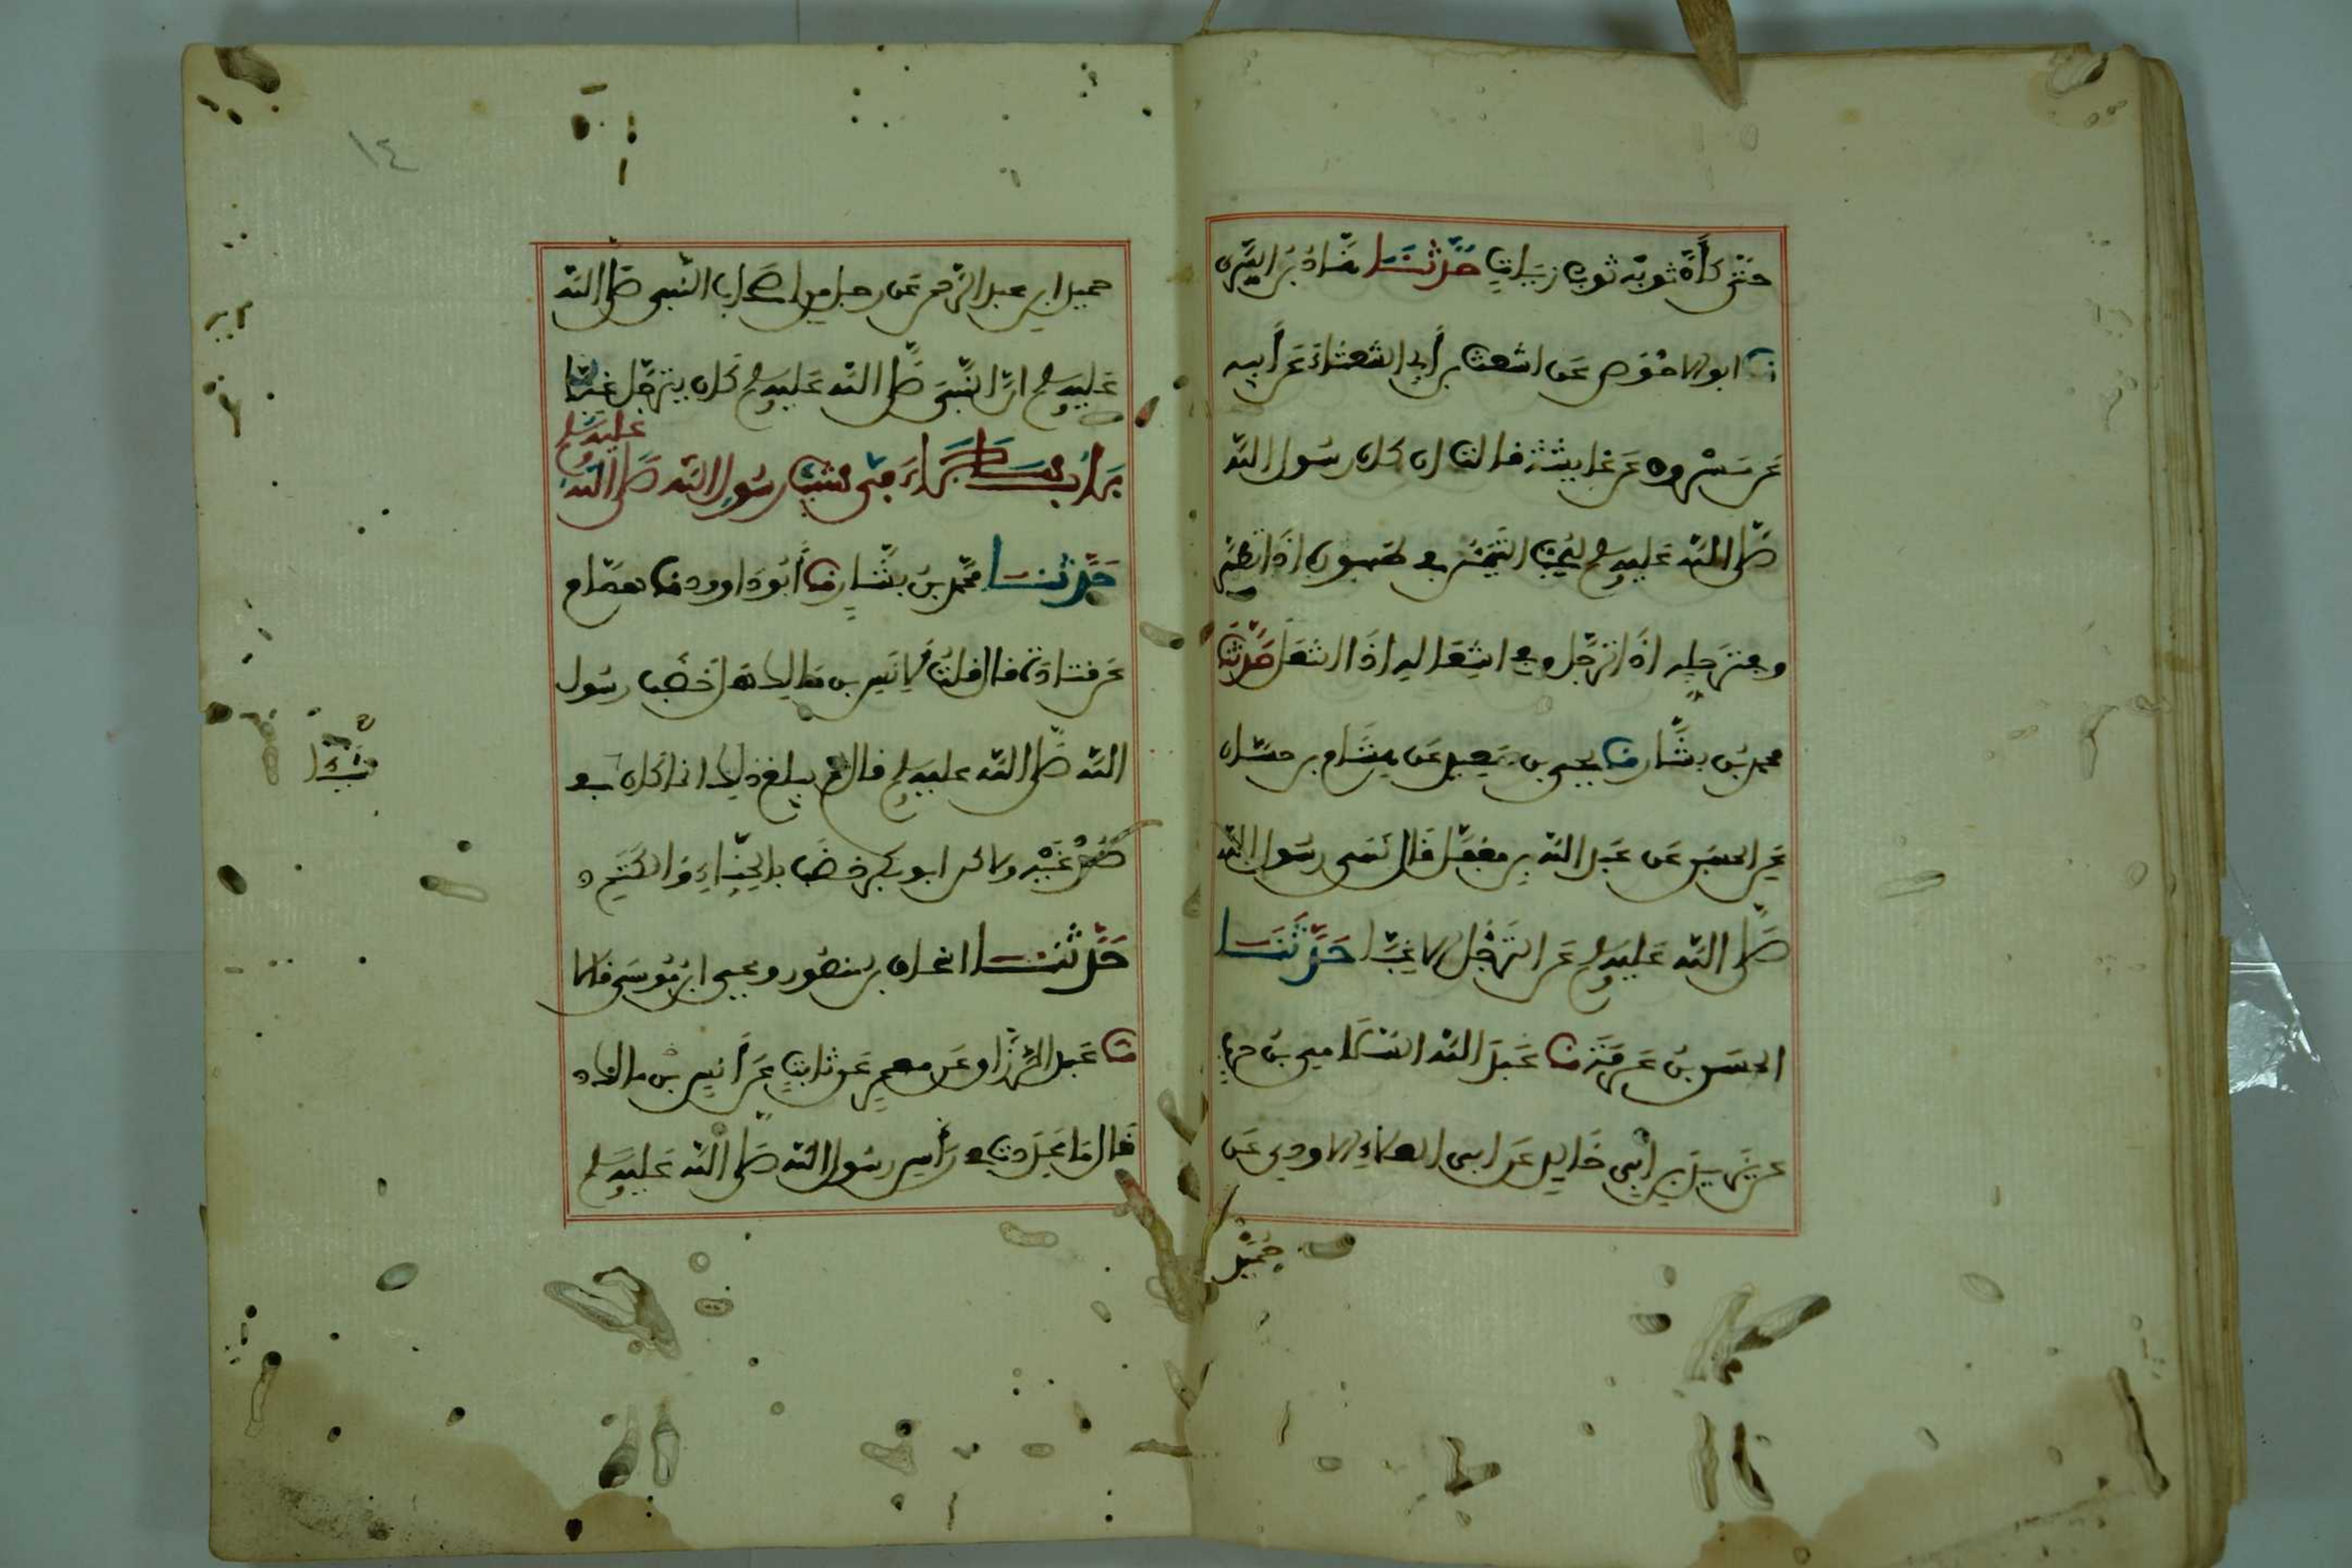 حتى كأن ثوبه ثوب زيات حدثنا هناد بن السري
نا ابو الاحوص عن اشعث بن أبي الشعثاء عن أبيه
عن مسروق عن عايشة قالت ان كان رسول الله
صلى الله عليه وسلم ليحب التيمن في طهوره اذا تطهر
وفي ترجله اذا ترجل وفي انتعاله اذا انتعل حدثنا
محمد بن بشار نا يحيى بن سعيد عن هشام بن حسان
عن الحسن عن عبد الله بن مغفل قال نهى رسول الله
صلى الله عليه وسلم عن الترجل الا غبا حدثنا
الحسن بن عرفة نا عبد السلام بن حرب
عن يزيد بن أبي خالد عن ابي العلاء الاودي عن
حميد
١٤
حميد ابن عبد الرحمن عن رجل من اصحاب النبي صلى الله
عليه وسلم ان النبي صلى الله عليه وسلم كان يترجل غبا
باب ما جاء في شيب رسول الله صلى الله عليه وسلم
حدثنا محمد بن بشار نا أبو داوود نا همام
عن قتادة قال قلت لانس بن مالك هل خضب رسول
الله صلى الله عليه وسلم قال لم يبلغ ذلك انما كان في
شيئا
صدغيه ولاكن ابو بكر خضب بالحناء والكتم
حدثنا اسحاق بن منصور ويحيى ابن موسى قالا
نا عبد الرزاق عن معمر عن ثابت عن أنس بن مالك
قال ما عددت في رأس رسول الله صلى الله عليه وسلم